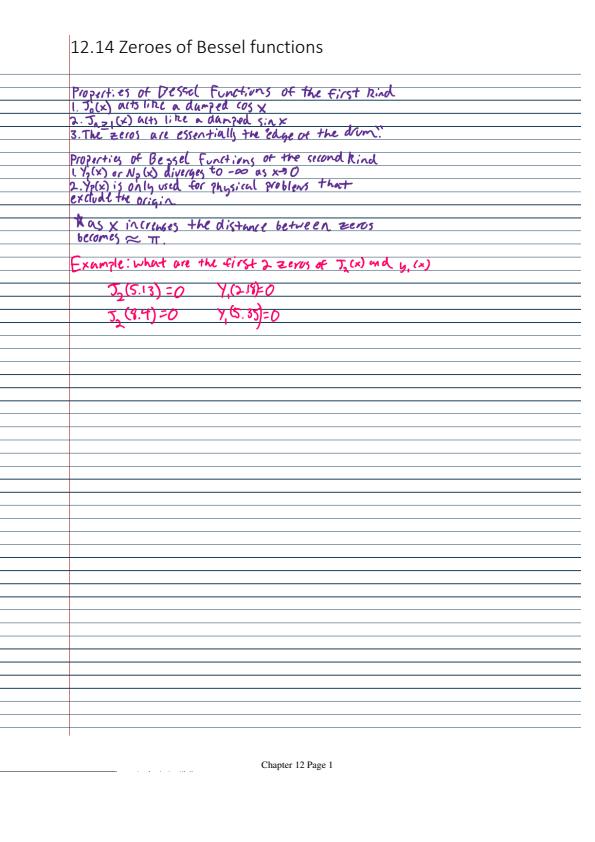 12.14 Zeroes of Bessel functions
Properties of Bessel Functions of the first Kind
1. J₀(x) acts like a damped cos x
2. Jₙ≥₁(x) acts like a damped sin x
3. The zeros are essentially the "edge of the drum."
Properties of Bessel Functions of the second Kind
1. Yₚ(x) or Nₚ(x) diverges to -∞ as x→0
2. Yₚ(x) is only used for physical problems that
exclude the origin
* as x increases the distance between zeros
becomes ≈ π.
Example: what are the first 2 zeros of J₂(x) and y₁(x)
J₂(5.13)=0 Y₁(2.18)=0
J₂(8.4)=0 Y₁(5.35)=0
Chapter 12 Page 1